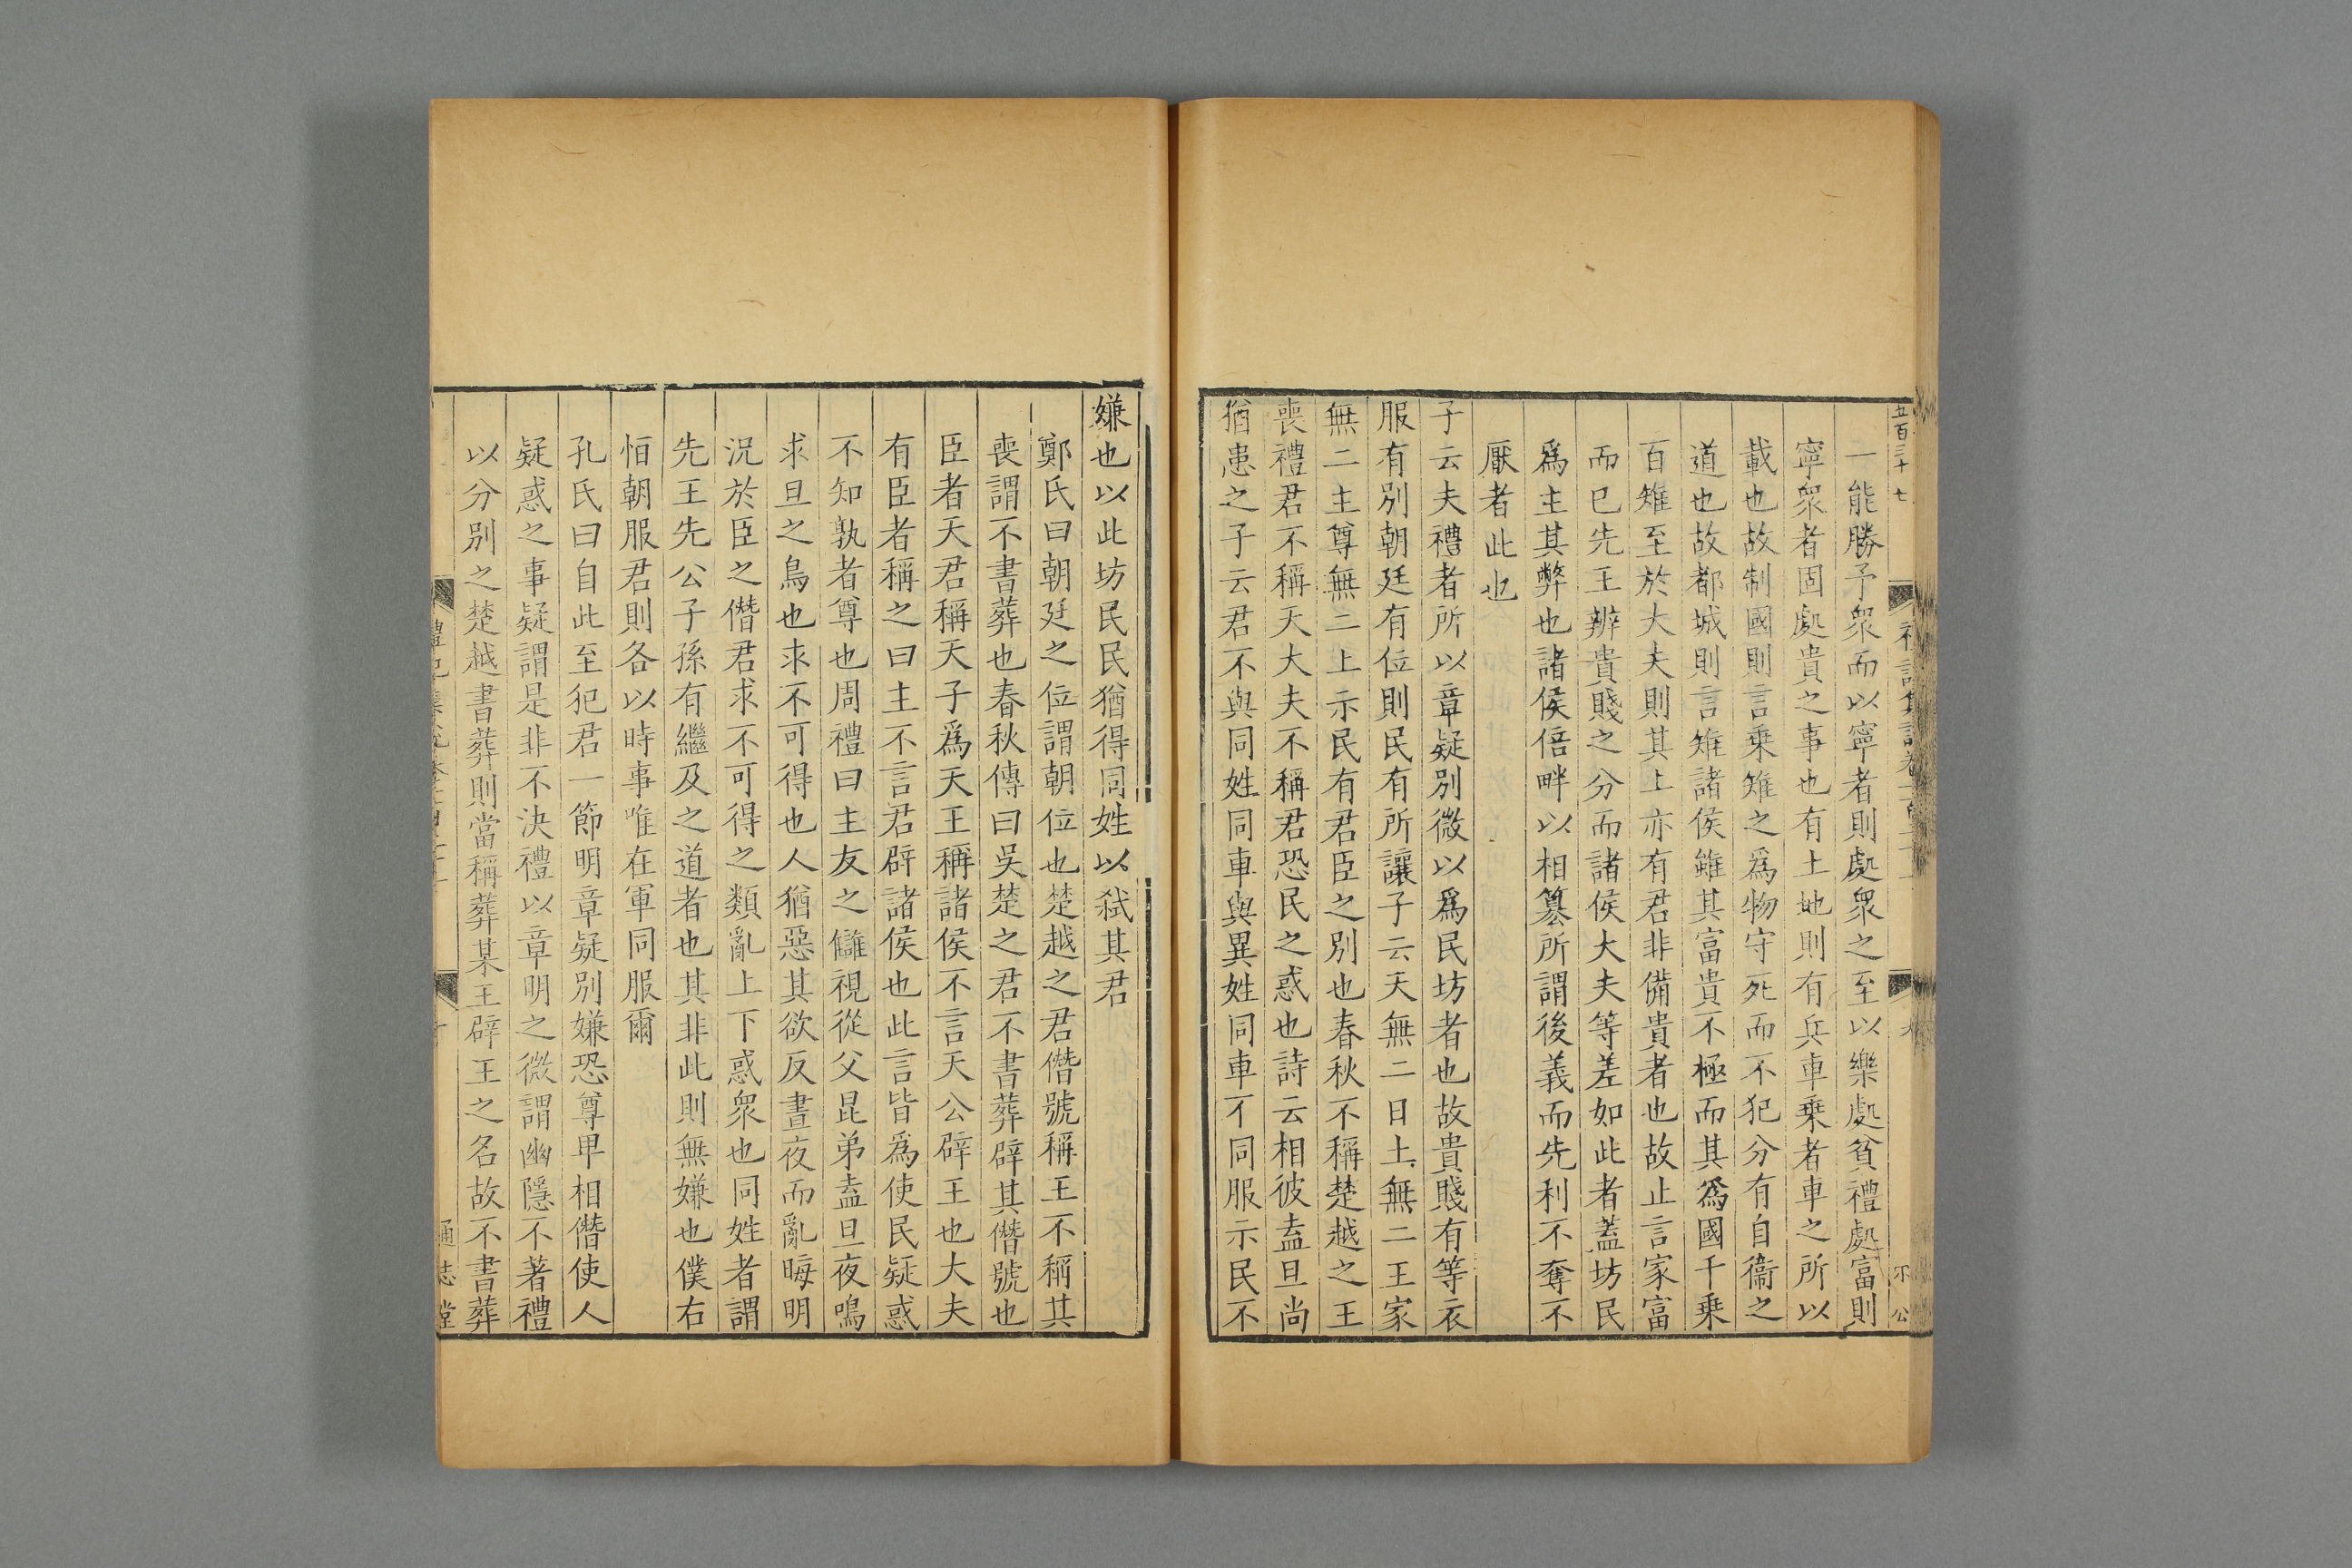 五百三十七
一能勝予衆而以寧者則處衆之至以樂處貧禮處富則
寧衆者固處貴之事也有土地則有兵車乗者車之所以
載也故制國則言乗雉之爲物守死而不犯分有自衞之
道也故都城則言雉諸侯雖其富貴不極而其爲國千乗
百雉至於大夫則其上亦有君非備貴者也故止言家富
而已先王辨貴賤之分而諸侯大夫等差如此者蓋坊民
爲主其弊也諸侯倍畔以相簒所謂後義而先利不奪不
厭者此也
子云夫禮者所以章疑別微以爲民坊者也故貴賤有等衣
服有別朝廷有位則民有所讓子云天無二日土無二王家
無二主尊無二上示民有君臣之別也春秋不稱楚越之王
喪禮君不稱天大夫不稱君恐民之惑也詩云相彼盍旦尚
猶患之子云君不與同姓同車與異姓同車不同服示民不
嫌也以此坊民民猶得同姓以弑其君
鄭氏曰朝廷之位謂朝位也楚越之君僭號稱王不稱其
喪謂不書葬也春秋傳曰吳楚之君不書葬辟其僭號也
臣者天君稱天子爲天王稱諸侯不言天公辟王也大夫
有臣者稱之曰主不言君辟諸侯也此言皆爲使民疑惑
不知孰者尊也周禮曰主友之讎視從父昆弟盍旦夜鳴
求旦之鳥也求不可得也人猶惡其欲反晝夜而亂晦明
況於臣之僭君求不可得之類亂上下惑衆也同姓者謂
先王先公子孫有繼及之道者也其非此則無嫌也僕右
恒朝服君則各以時事唯在軍同服爾
孔氏曰自此至犯君一節明章疑別嫌恐尊卑相僭使人
疑惑之事疑謂是非不決禮以章明之微謂幽隱不著禮
以分別之楚越書葬則當稱葬某王辟王之名故不書葬
通志堂